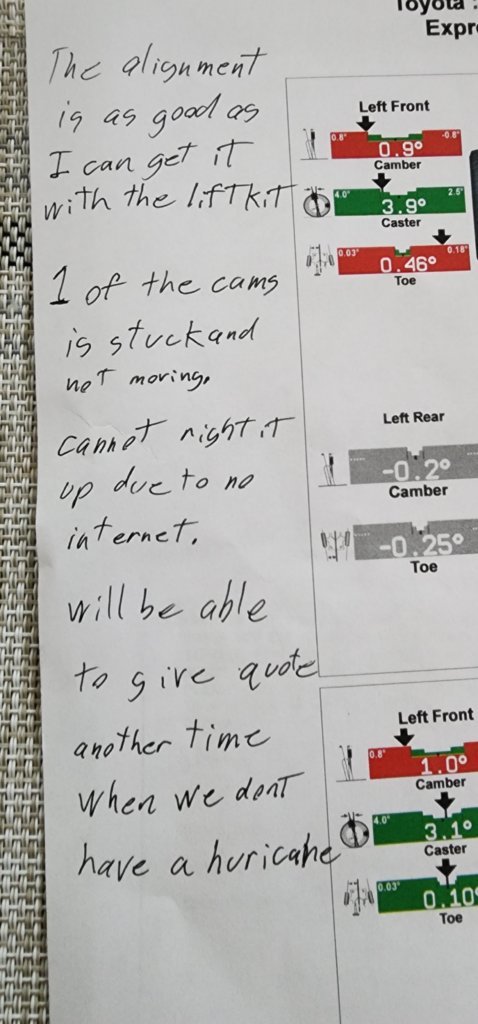 Toyota :
Expr
The alignment
is as good as
I can get it
with the liftkit
1 of the cams
is stuck and
not moving.
cannot right it
up due to no
internet.
will be able
to give quote
another time
when we dont
have a huricane
Left Front
0.8° -0.8°
0.9°
Camber
4.0° 2.5°
3.9°
Caster
0.03° 0.18°
0.46°
Toe
Left Rear
-0.2°
Camber
-0.25°
Toe
Left Front
0.8°
1.0°
Camber
4.0°
3.1°
Caster
0.03°
0.10°
Toe